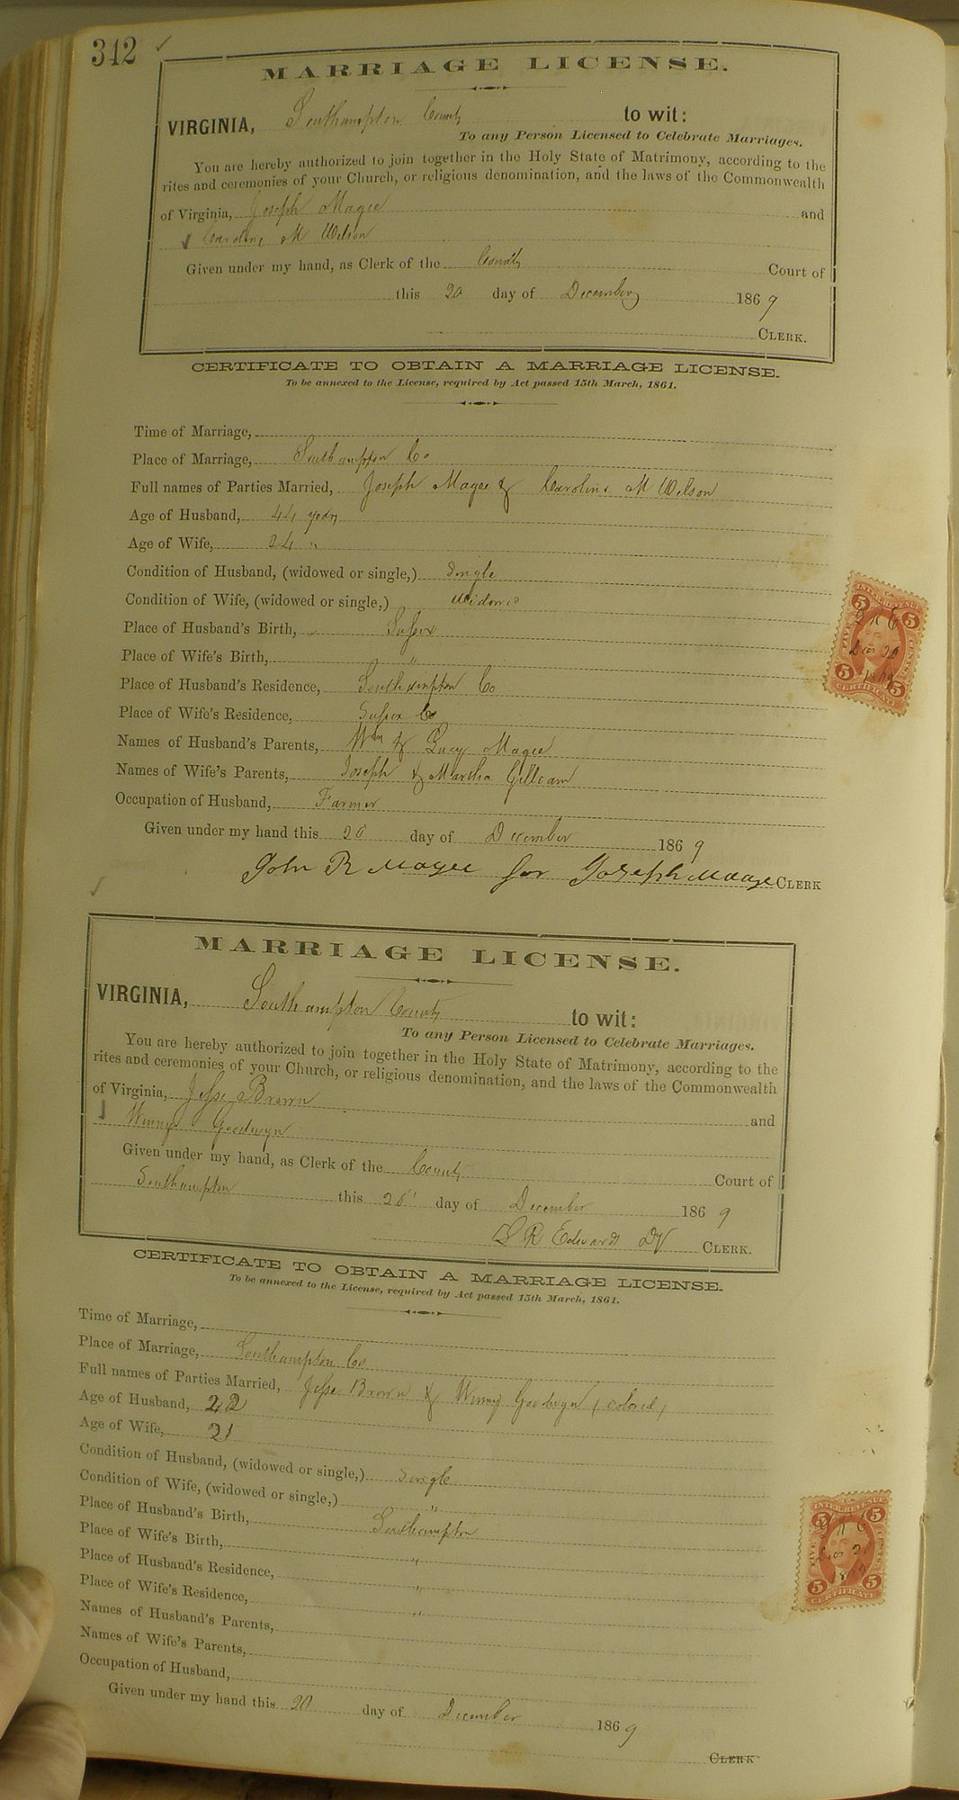 342
MARRIAGE LICENSE.
VIRGINIA, Southampton County to wit:
To any Person Licensed to Celebrate Marriages.
You are hereby authorized to join together in the Holy State of Matrimony, according to the
rites and ceremonies of your Church, or religious denomination, and the laws of the Commonwealth
of Virginia, Joseph Magee and
Caroline M Wilson
Given under my hand, as Clerk of the County Court of
this 20 day of December 1869
CLERK.
CERTIFICATE TO OBTAIN A MARRIAGE LICENSE.
To be annexed to the License, required by Act passed 15th March, 1861.
Time of Marriage,
Place of Marriage, Southampton Co
Full names of Parties Married, Joseph Magee & Caroline M Wilson
Age of Husband, 44 years
Age of Wife, 24 "
Condition of Husband, (widowed or single,) Single
Condition of Wife, (widowed or single,) Widow
Place of Husband's Birth, Sussex
Place of Wife's Birth, "
Place of Husband's Residence, Southampton Co
Place of Wife's Residence, Sussex Co
Names of Husband's Parents, Wm & Lucy Magee
Names of Wife's Parents, Joseph & Martha Gilliam
Occupation of Husband, Farmer
Given under my hand this 20 day of December 1869
John R Magee for Joseph Magee CLERK
INTER. REVENUE
5 5
FIVE CENTS
5 5
CERTIFICATE
MARRIAGE LICENSE.
VIRGINIA, Southampton County to wit:
To any Person Licensed to Celebrate Marriages.
You are hereby authorized to join together in the Holy State of Matrimony, according to the
rites and ceremonies of your Church, or religious denomination, and the laws of the Commonwealth
of Virginia, Jesse Brown and
Winny Goodwyn
Given under my hand, as Clerk of the County Court of
Southampton this 20 day of December 1869
L R Edwards DY CLERK.
CERTIFICATE TO OBTAIN A MARRIAGE LICENSE.
To be annexed to the License, required by Act passed 15th March, 1861.
Time of Marriage,
Place of Marriage, Southampton Co
Full names of Parties Married, Jesse Brown & Winny Goodwyn (colored)
Age of Husband, 22
Age of Wife, 21
Condition of Husband, (widowed or single,) Single
Condition of Wife, (widowed or single,) "
Place of Husband's Birth, Southampton
Place of Wife's Birth, "
Place of Husband's Residence, "
Place of Wife's Residence, "
Names of Husband's Parents,
Names of Wife's Parents,
Occupation of Husband,
Given under my hand this 20 day of December 1869
CLERK
INTER. REVENUE
5 5
FIVE CENTS
5 5
CERTIFICATE